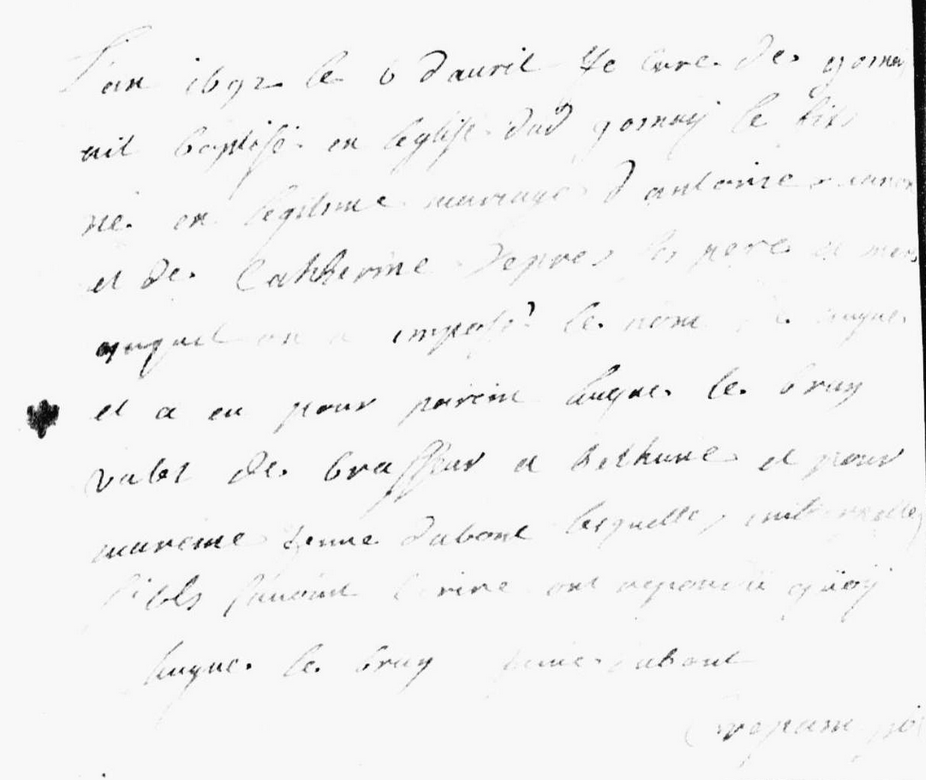 L'an 1692 le 6 d'auril Je Cure de gornay
ait baptisé en leglise dud gornay le fils
né en legitime mariage d'antoine
et de Catherine depres ses pere et mere
auquel on a imposé le nom de hugue
et a eu pour parein hugue le bruy
valet de brasseur a bethune et pour
mareine Jenne dubont lesquelle
s'ils scauoint Ecrire ont repondu q'uöÿ
hugue le bruy Jenne dubont